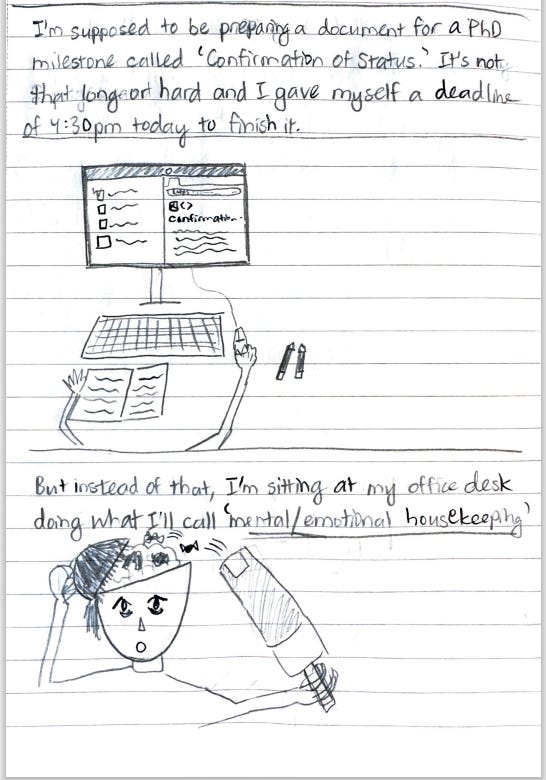 I'm supposed to be preparing a document for a PhD
milestone called 'Confirmation of Status.' It's not
that long or hard and I gave myself a deadline
of 4:30pm today to finish it.
Confirmation..
But instead of that, I'm sitting at my office desk
doing what I'll call 'mental/emotional housekeeping'